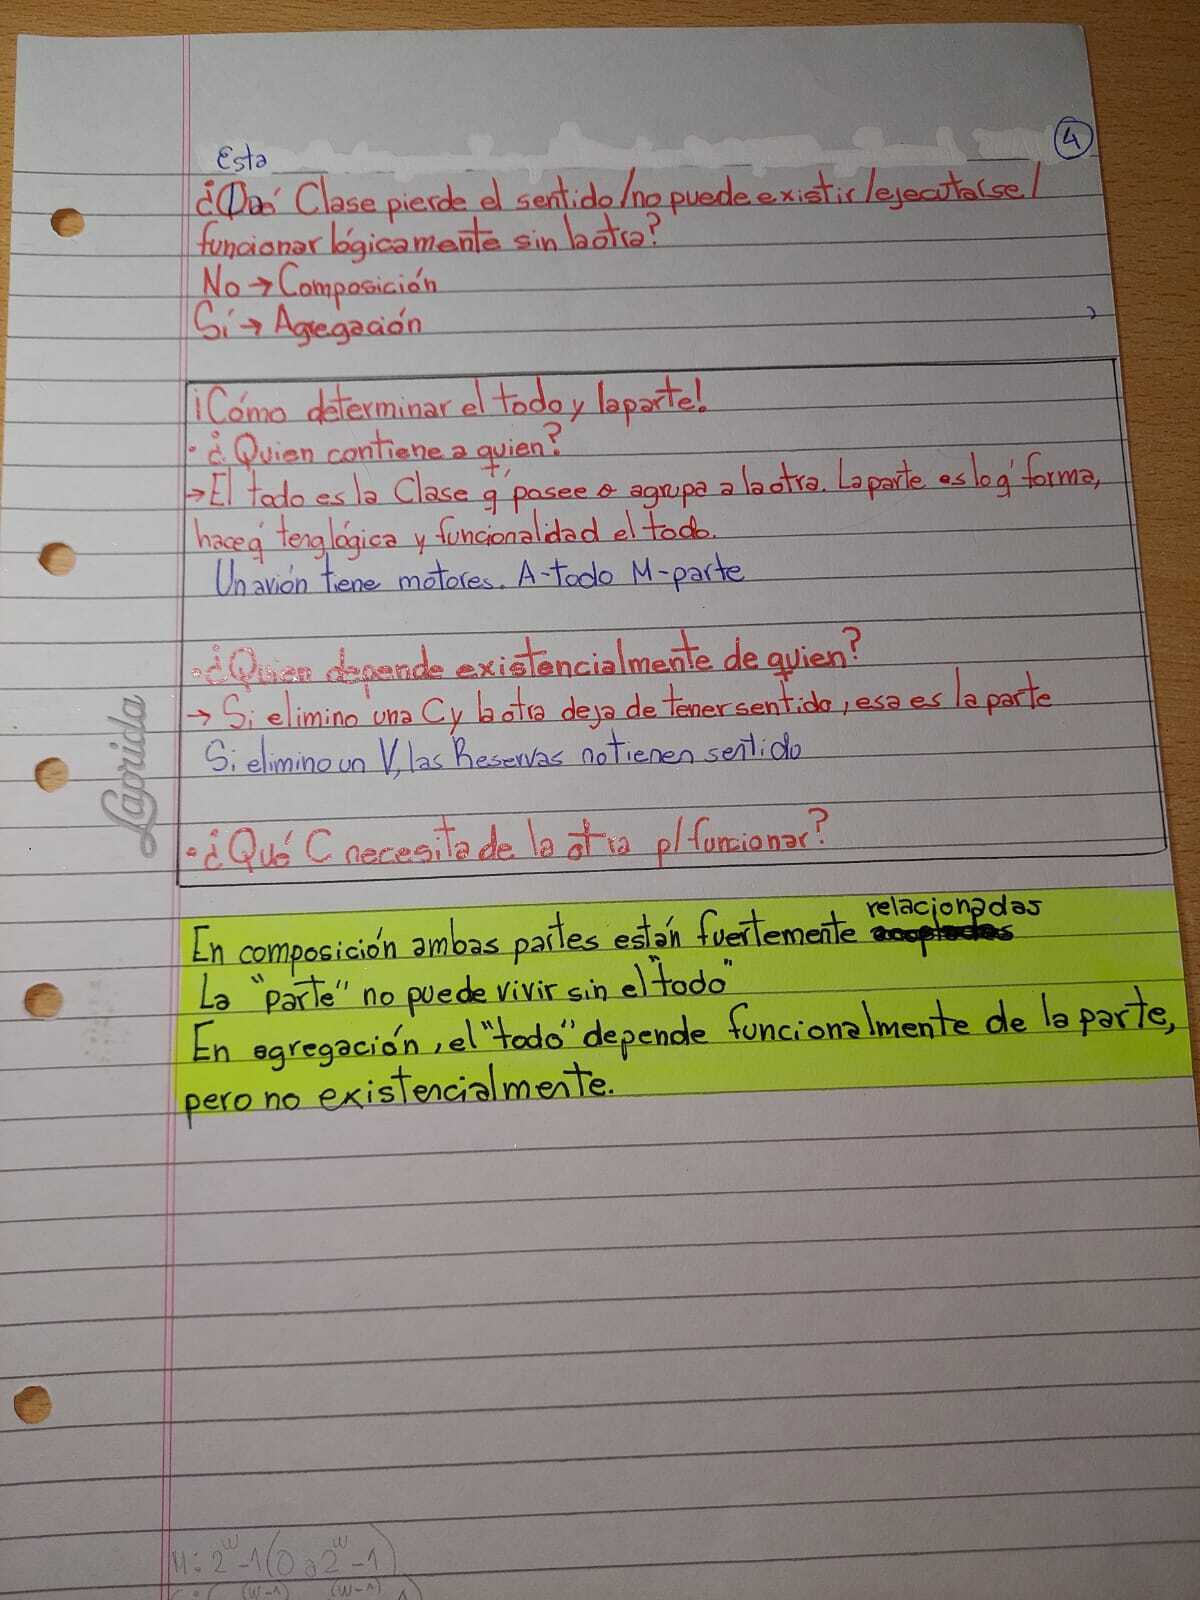 4
Esta
¿ Clase pierde el sentido/no puede existir/ejecutarse/
funcionar lógicamente sin la otra?
No → Composición
Sí → Agregación
¡Cómo determinar el todo y la parte!
· ¿Quien contiene a quien?
→ El todo es la Clase q' posee o agrupa a la otra. La parte es lo q' forma,
hace q' teng lógica y funcionalidad el todo.
Un avión tiene motores. A-todo M-parte
· ¿Quien depende existencialmente de quien?
→ Si elimino una C y la otra deja de tener sentido, esa es la parte
Si elimino un V, las Reservas no tienen sentido
· ¿Qué C necesita de la otra p/ funcionar?
Laprida
relacionadas
En composición ambas partes están fuertemente
La "parte" no puede vivir sin el "todo"
En agregación, el "todo" depende funcionalmente de la parte,
pero no existencialmente.
M: 2^w -1 (0 a 2^w -1)
(w-1) (w-1)